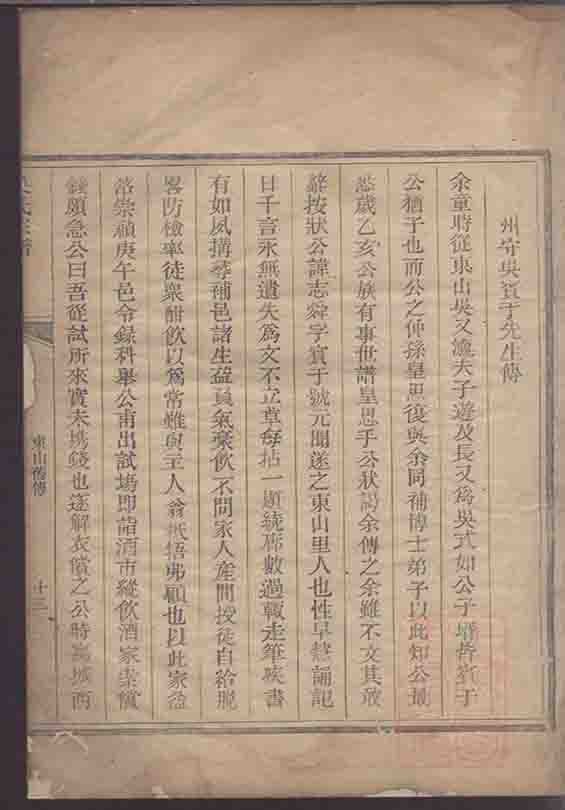 州守吳賓于先生傳
余童時從東山吳又濂夫子遊及長又爲吳式如公子壻皆賓于
公猶子也而公之仲孫皇思復與余同補博士弟子以此知公最
悉歲乙亥公族有事世譜皇思手公狀謁余傳之余雖不文其敢
辭按狀公諱志舜字賓于號元閣遂之東山里人也性早慧誦記
日千言永無遺失爲文不立草每拈一題繞廊數過輒走筆疾書
有如夙搆尋補邑諸生益負氣豪飲不問家人產間授徒自給脫
畧防檢率徒衆酣飲以爲常難與主人翁抵牾弗顧也以此家益
落崇禎庚午邑令錄科舉公甫出試塲即詣酒市縱飲酒家索償
錢頗急公曰吾從試所來實未携錢也遂解衣償之公時寓城西
吳氏宗譜
東山舊傳
十三